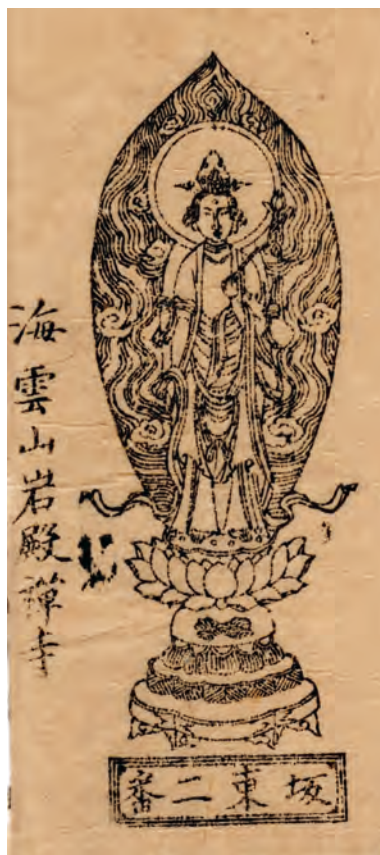 海雲山岩殿禪寺
坂東二番